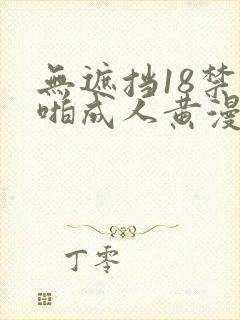 無遮挡18禁
啪成人黄漫
丁零